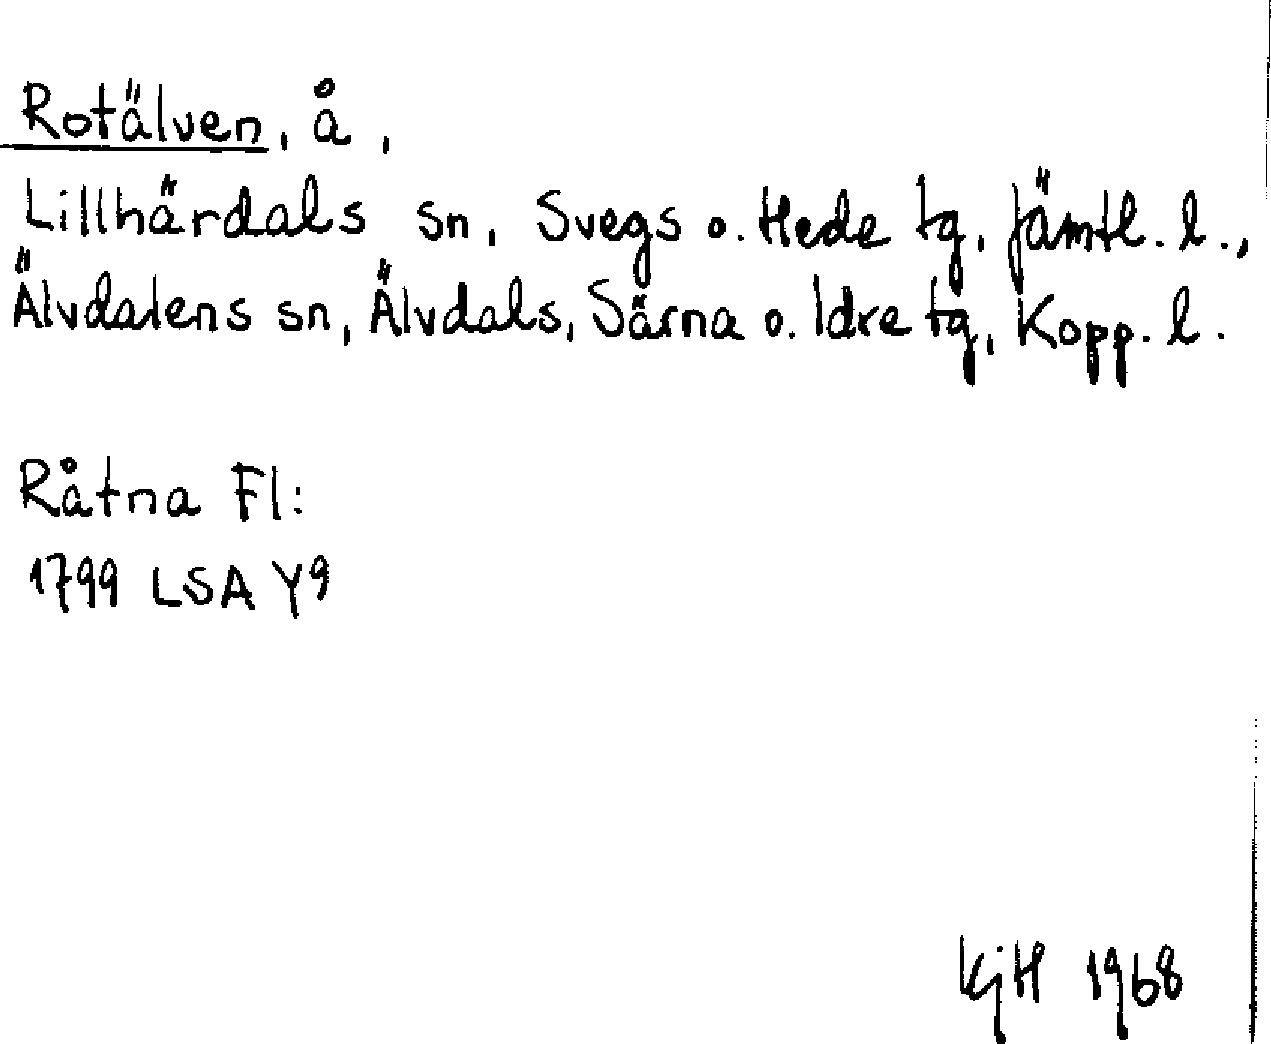 Rotälven, å,
Lillhärdals sn, Svegs o. Hede tg, Jämtl. l.,
Älvdalens sn, Älvdals, Särna o. Idre tg, Kopp. l.
Råtna Fl:
1799 LSA Y9
KjH 1968